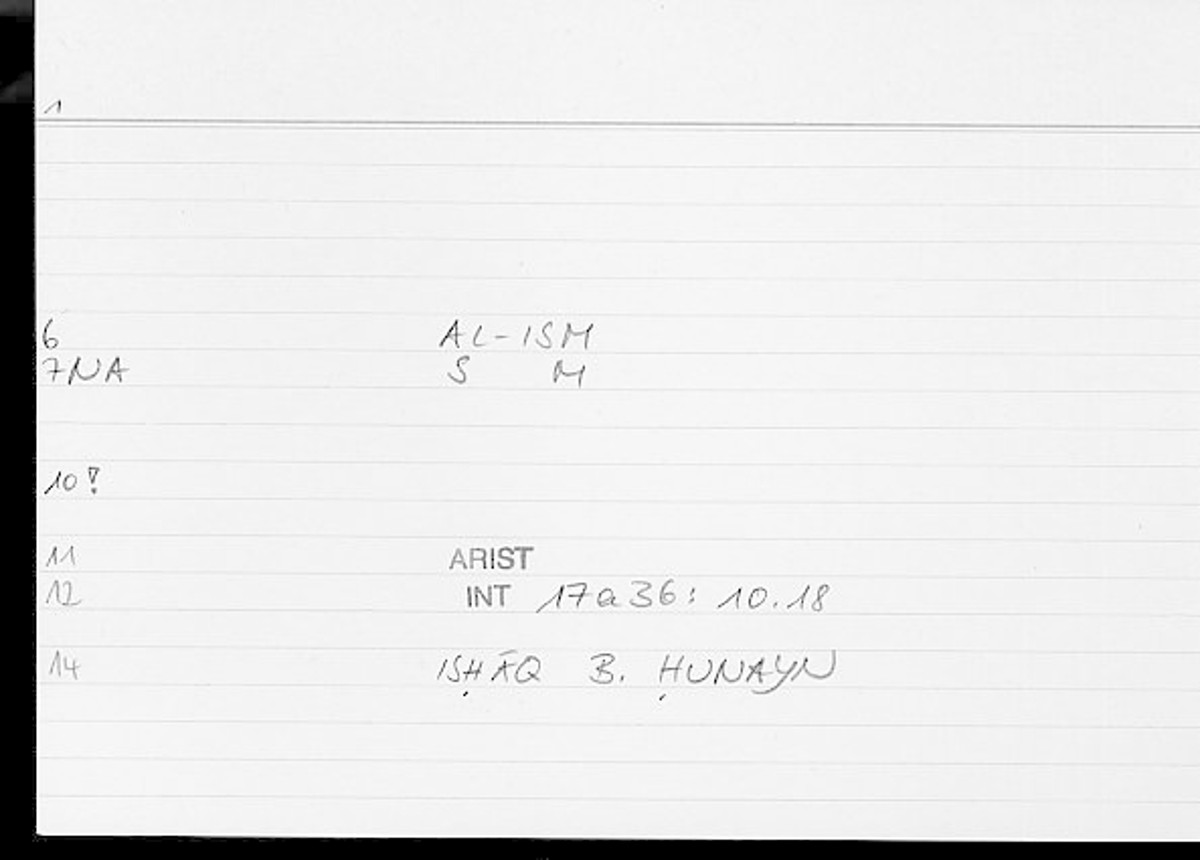 1
6 AL-ISM
7NA S M
10!
11 ARIST
12 INT 17a36: 10.18
14 ISḤĀQ B. ḤUNAYN